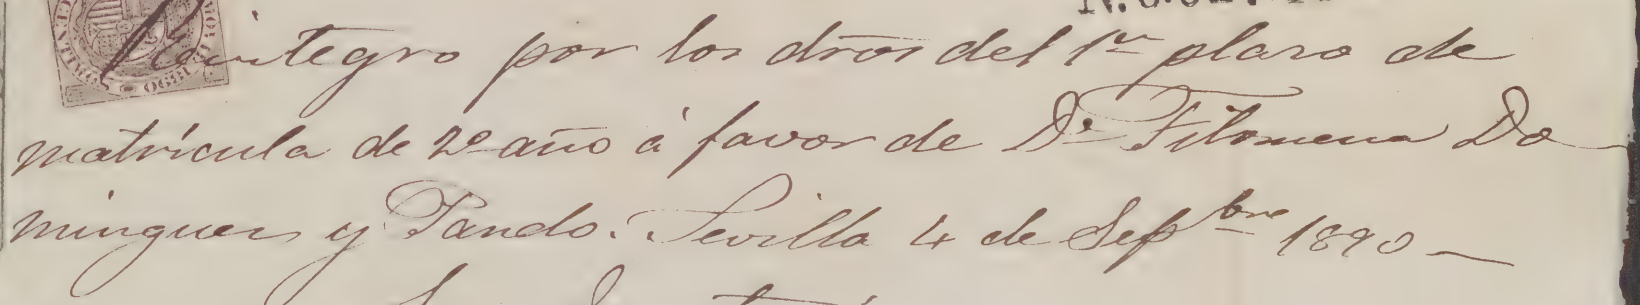 Reintegro por los dros del 1er plazo de
matrícula de 2º año á favor de Dª Filomena Do
minguez y Pando. Sevilla 4 de Sepbre 1890